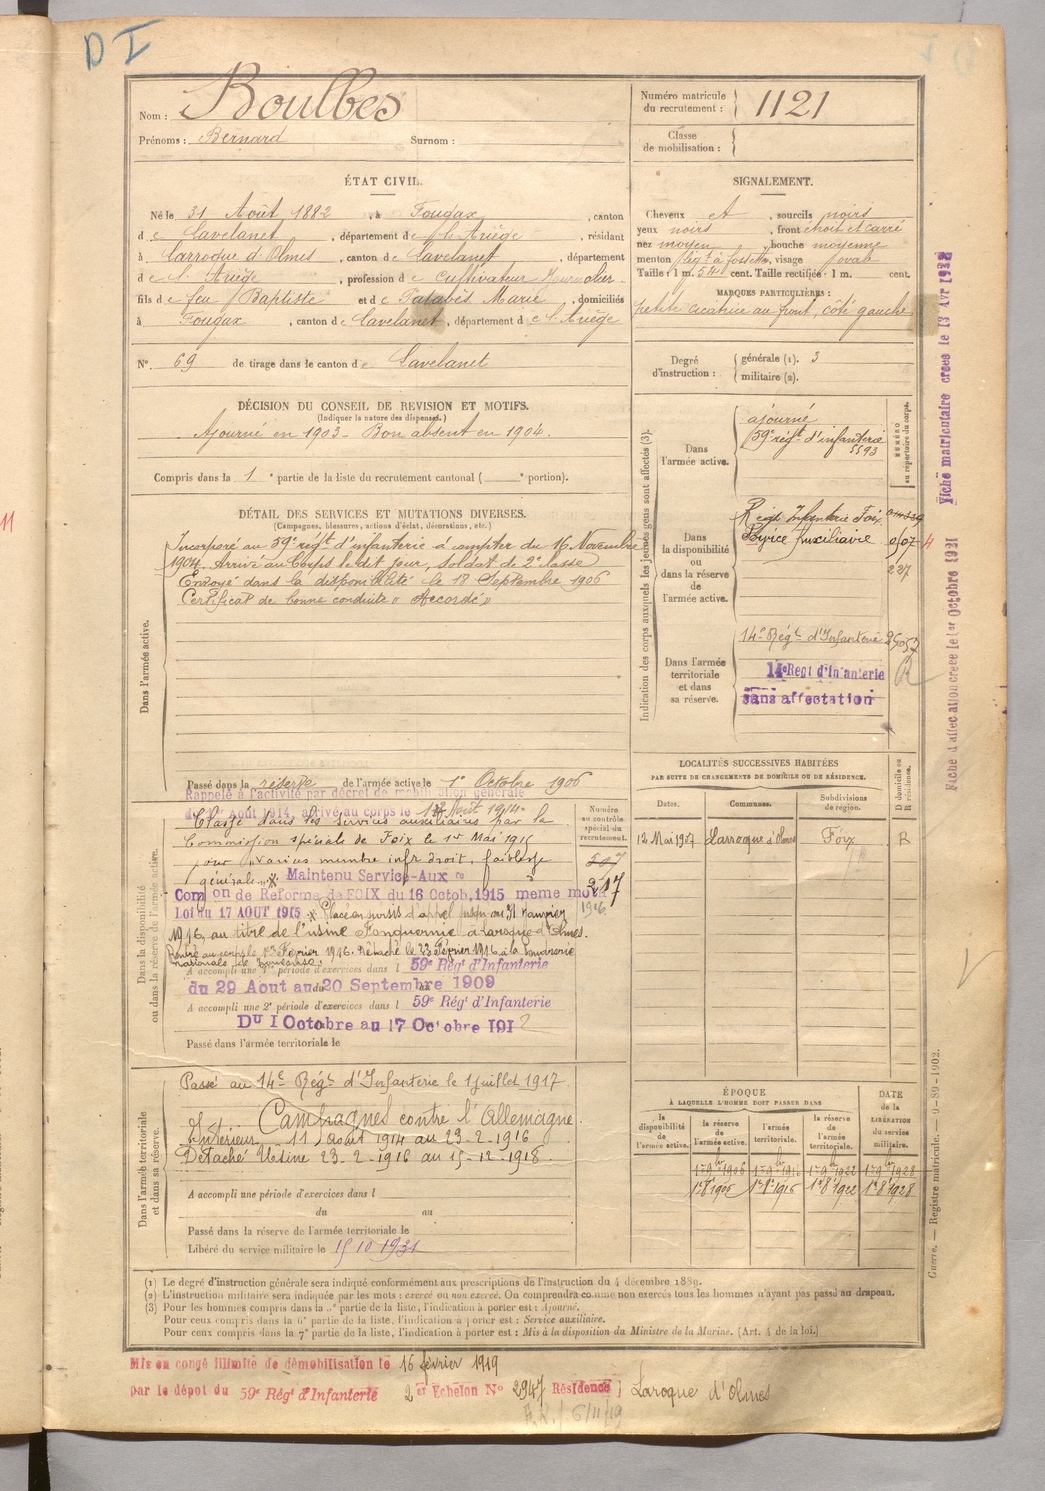 D I
Nom : Boulbes
Prénoms : Bernard Surnom :
Numéro matricule du recrutement : 1121
Classe de mobilisation :
ÉTAT CIVIL.
Né le 31 Août 1882 à Fougax, canton
de Lavelanet, département de l'Ariège, résidant
à Larroque d'Olmes, canton de Lavelanet, département
de l'Ariège, profession de Cultivateur Journalier.
fils de feu Baptiste et de Palabès Marie, domiciliés
à Fougax, canton de Lavelanet, département de l'Ariège
N° 69 de tirage dans le canton de Lavelanet
SIGNALEMENT.
Cheveux et, sourcils noirs
yeux noirs, front étroit et carré
nez moyen, bouche moyenne
menton à fossette, visage ovale
Taille : 1 m. 54 cent. Taille rectifiée : 1 m. cent.
MARQUES PARTICULIÈRES :
petite cicatrice au front, côté gauche
Degré d'instruction : générale (1). 3
militaire (2).
DÉCISION DU CONSEIL DE REVISION ET MOTIFS.
(Indiquer la nature des dispenses.)
Ajourné en 1903 - Bon absent en 1904.
Compris dans la 1e partie de la liste du recrutement cantonal ( e portion).
DÉTAIL DES SERVICES ET MUTATIONS DIVERSES.
(Campagnes, blessures, actions d'éclat, décorations, etc.)
Dans l'armée active.
Incorporé au 59e régt d'infanterie à compter du 16 Novembre
1904. Arrivé au Corps le dit jour, soldat de 2e classe
Envoyé dans la disponibilité le 18 Septembre 1906
Certificat de bonne conduite « Accordé »
Passé dans la réserve de l'armée active le 1er Octobre 1906
Dans la disponibilité ou dans la réserve de l'armée active.
Rappelé à l'activité par décret de mobilisation générale
du 1er Août 1914, arrivé au corps le Août 1914.
Classé dans les services auxiliaires par la
Commission spéciale de Foix le 1er Mai 1915
pour "varices membre infr droit, faiblesse
générale" Maintenu Service-Auxre
Comon de Reforme de FOIX du 16 Octob. 1915 meme motif
Loi du 17 AOUT 1915 Placé en sursis d'appel jusqu'au 31 Janvier
1916, au titre de l'usine Fonquernie à Laroque d'Olmes.
Rentré au corps le 1er Février 1916. Détaché le 23 Février 1916 à la Poudrerie
nationale de Toulouse.
A accompli une 1re période d'exercices dans l 59e Régt d'Infanterie
du 29 Aout au 20 Septembre 1909
A accompli une 2e période d'exercices dans l 59e Régt d'Infanterie
Du 1 Octobre au 17 Octobre 1912
Passé dans l'armée territoriale le
Numéro au contrôle spécial du recrutement.
217
1916
Dans l'armée territoriale et dans sa réserve.
Passé au 14e Régt d'Infanterie le 1 juillet 1917
Campagnes contre l'Allemagne
Intérieur 11 août 1914 au 23-2-1916
Détaché Usine 23-2-1916 au 15-12-1918.
A accompli une période d'exercices dans l
du au
Passé dans la réserve de l'armée territoriale le
Libéré du service militaire le 15 10 1931
Indication des corps auxquels les jeunes gens sont affectés (3).
NUMÉRO au répertoire du corps.
Dans l'armée active.
ajourné
59e régt d'infanterie
5593
Dans la disponibilité ou dans la réserve de l'armée active.
Régt Infanterie Foix
Service Auxiliaire
Dans l'armée territoriale et dans sa réserve.
14e Régt d'Infanterie
14e Regt d'infanterie
sans affectation
LOCALITÉS SUCCESSIVES HABITÉES
PAR SUITE DE CHANGEMENTS DE DOMICILE OU DE RÉSIDENCE.
Dates. Communes. Subdivisions de région. D domicile ou R résidence.
12 Mai 1907 Larroque d'Olmes Foix R
ÉPOQUE
À LAQUELLE L'HOMME DOIT PASSER DANS
la disponibilité de l'armée active. la réserve de l'armée active. l'armée territoriale. la réserve de l'armée territoriale.
DATE de la LIBÉRATION du service militaire.
1er 8 1906 1er 8 1916 1er 8 1922 1er 8 1928
Fiche matriculaire créée le 13 Avr
Fiche d'affectation créée le 1er Octobre 1921
Guerre. — Registre matricule. — 9-89-1902.
(1) Le degré d'instruction générale sera indiqué conformément aux prescriptions de l'instruction du 4 décembre 1889.
(2) L'instruction militaire sera indiquée par les mots : exercé ou non exercé. On comprendra comme non exercés tous les hommes n'ayant pas passé au drapeau.
(3) Pour les hommes compris dans la 5e partie de la liste, l'indication à porter est : Ajourné.
Pour ceux compris dans la 6e partie de la liste, l'indication à porter est : Service auxiliaire.
Pour ceux compris dans la 7e partie de la liste, l'indication à porter est : Mis à la disposition du Ministre de la Marine. (Art. 4 de la loi.)
Mis en congé illimité de démobilisation le 16 février 1919
par le dépôt du 59e Régt d'Infanterie 2e Echelon N° 2947 Résidence Laroque d'Olmes